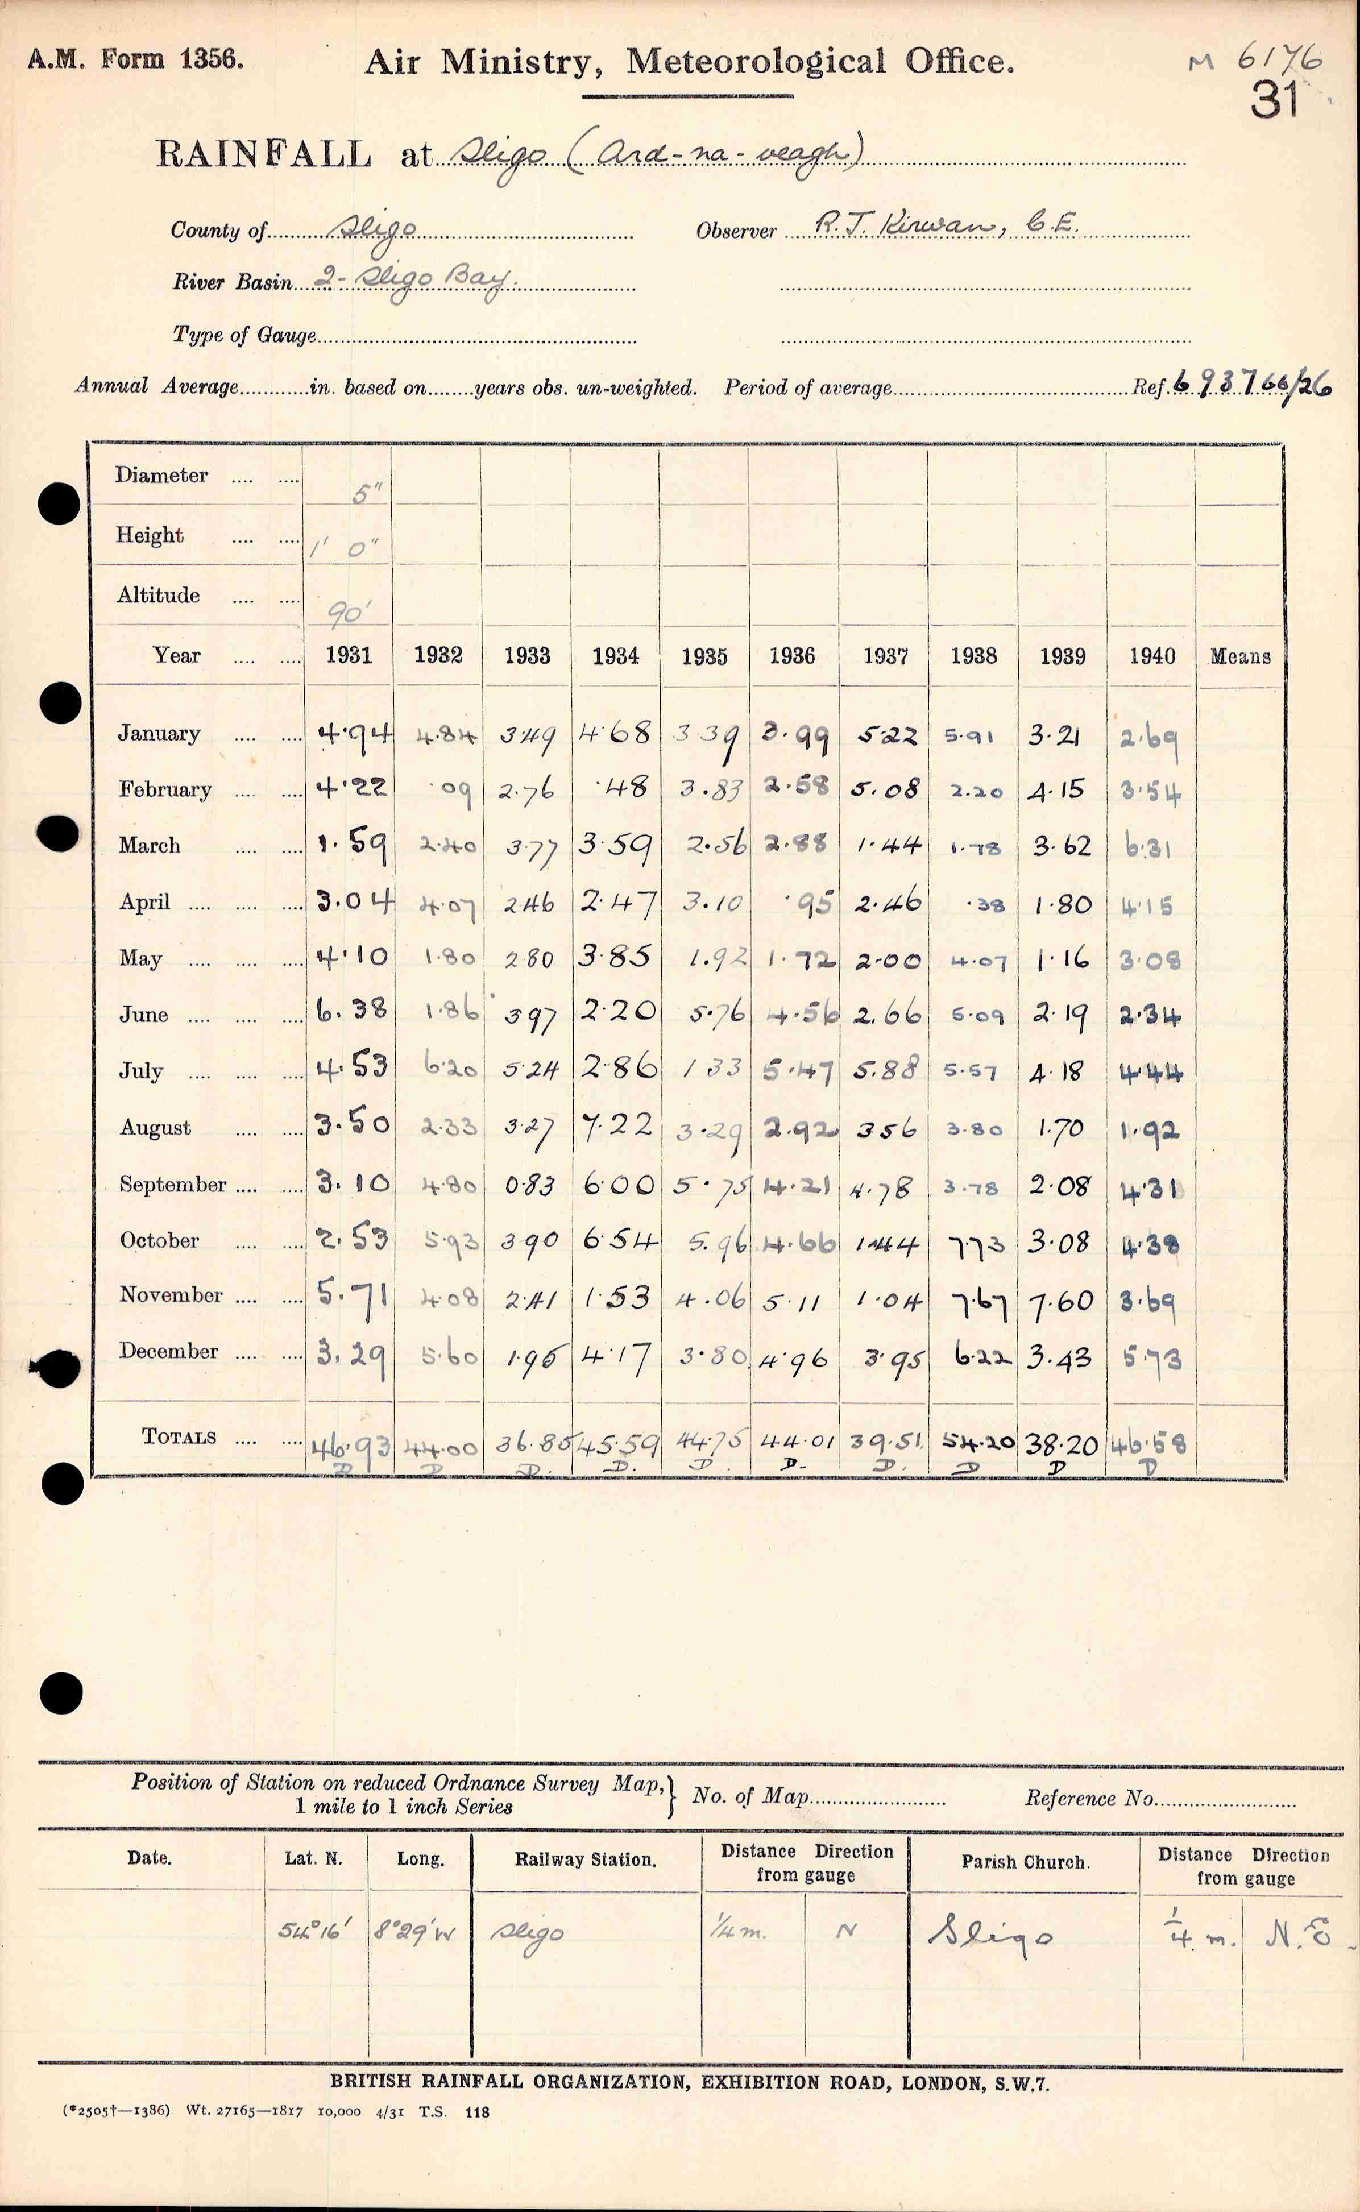 A.M. Form 1356.
Air Ministry, Meteorological Office.
M 6176
31
RAINFALL at Sligo (Ard-na-veagh)
County of Sligo Observer R.J. Kirwan, C.E.
River Basin 2 - Sligo Bay.
Type of Gauge
Annual Average in. based on years obs. un-weighted. Period of average Ref. 693766/26
Diameter 5"
Height 1' 0"
Altitude 90'
Year 1931 1932 1933 1934 1935 1936 1937 1938 1939 1940 Means
January 4.94 4.84 3.49 4.68 3.39 3.99 5.22 5.91 3.21 2.69
February 4.22 .09 2.76 .48 3.83 2.58 5.08 2.20 4.15 3.54
March 1.59 2.40 3.77 3.59 2.56 2.88 1.44 1.78 3.62 6.31
April 3.04 4.07 2.46 2.47 3.10 .95 2.46 .38 1.80 4.15
May 4.10 1.80 2.80 3.85 1.92 1.72 2.00 4.07 1.16 3.08
June 6.38 1.86 3.97 2.20 5.76 4.56 2.66 5.09 2.19 2.34
July 4.53 6.20 5.24 2.86 1.33 5.47 5.88 5.57 4.18 4.44
August 3.50 2.33 3.27 7.22 3.29 2.92 3.56 3.80 1.70 1.92
September 3.10 4.80 0.83 6.00 5.75 4.21 4.78 3.78 2.08 4.31
October 2.53 5.93 3.90 6.54 5.96 4.66 1.44 7.73 3.08 4.38
November 5.71 4.08 2.41 1.53 4.06 5.11 1.04 7.67 7.60 3.69
December 3.29 5.60 1.95 4.17 3.80 4.96 3.95 6.22 3.43 5.73
TOTALS 46.93 44.00 36.85 45.59 44.75 44.01 39.51 54.20 38.20 46.58
D D D. D. D. D- D. D D D
Position of Station on reduced Ordnance Survey Map, 1 mile to 1 inch Series } No. of Map Reference No.
Date. Lat. N. Long. Railway Station. Distance Direction from gauge Parish Church. Distance Direction from gauge
54°16' 8°29'W Sligo 1/4 m. N Sligo 1/4 m. N.E.
BRITISH RAINFALL ORGANIZATION, EXHIBITION ROAD, LONDON, S.W.7.
(*2505†—1386) Wt. 27165—1817 10,000 4/31 T.S. 118